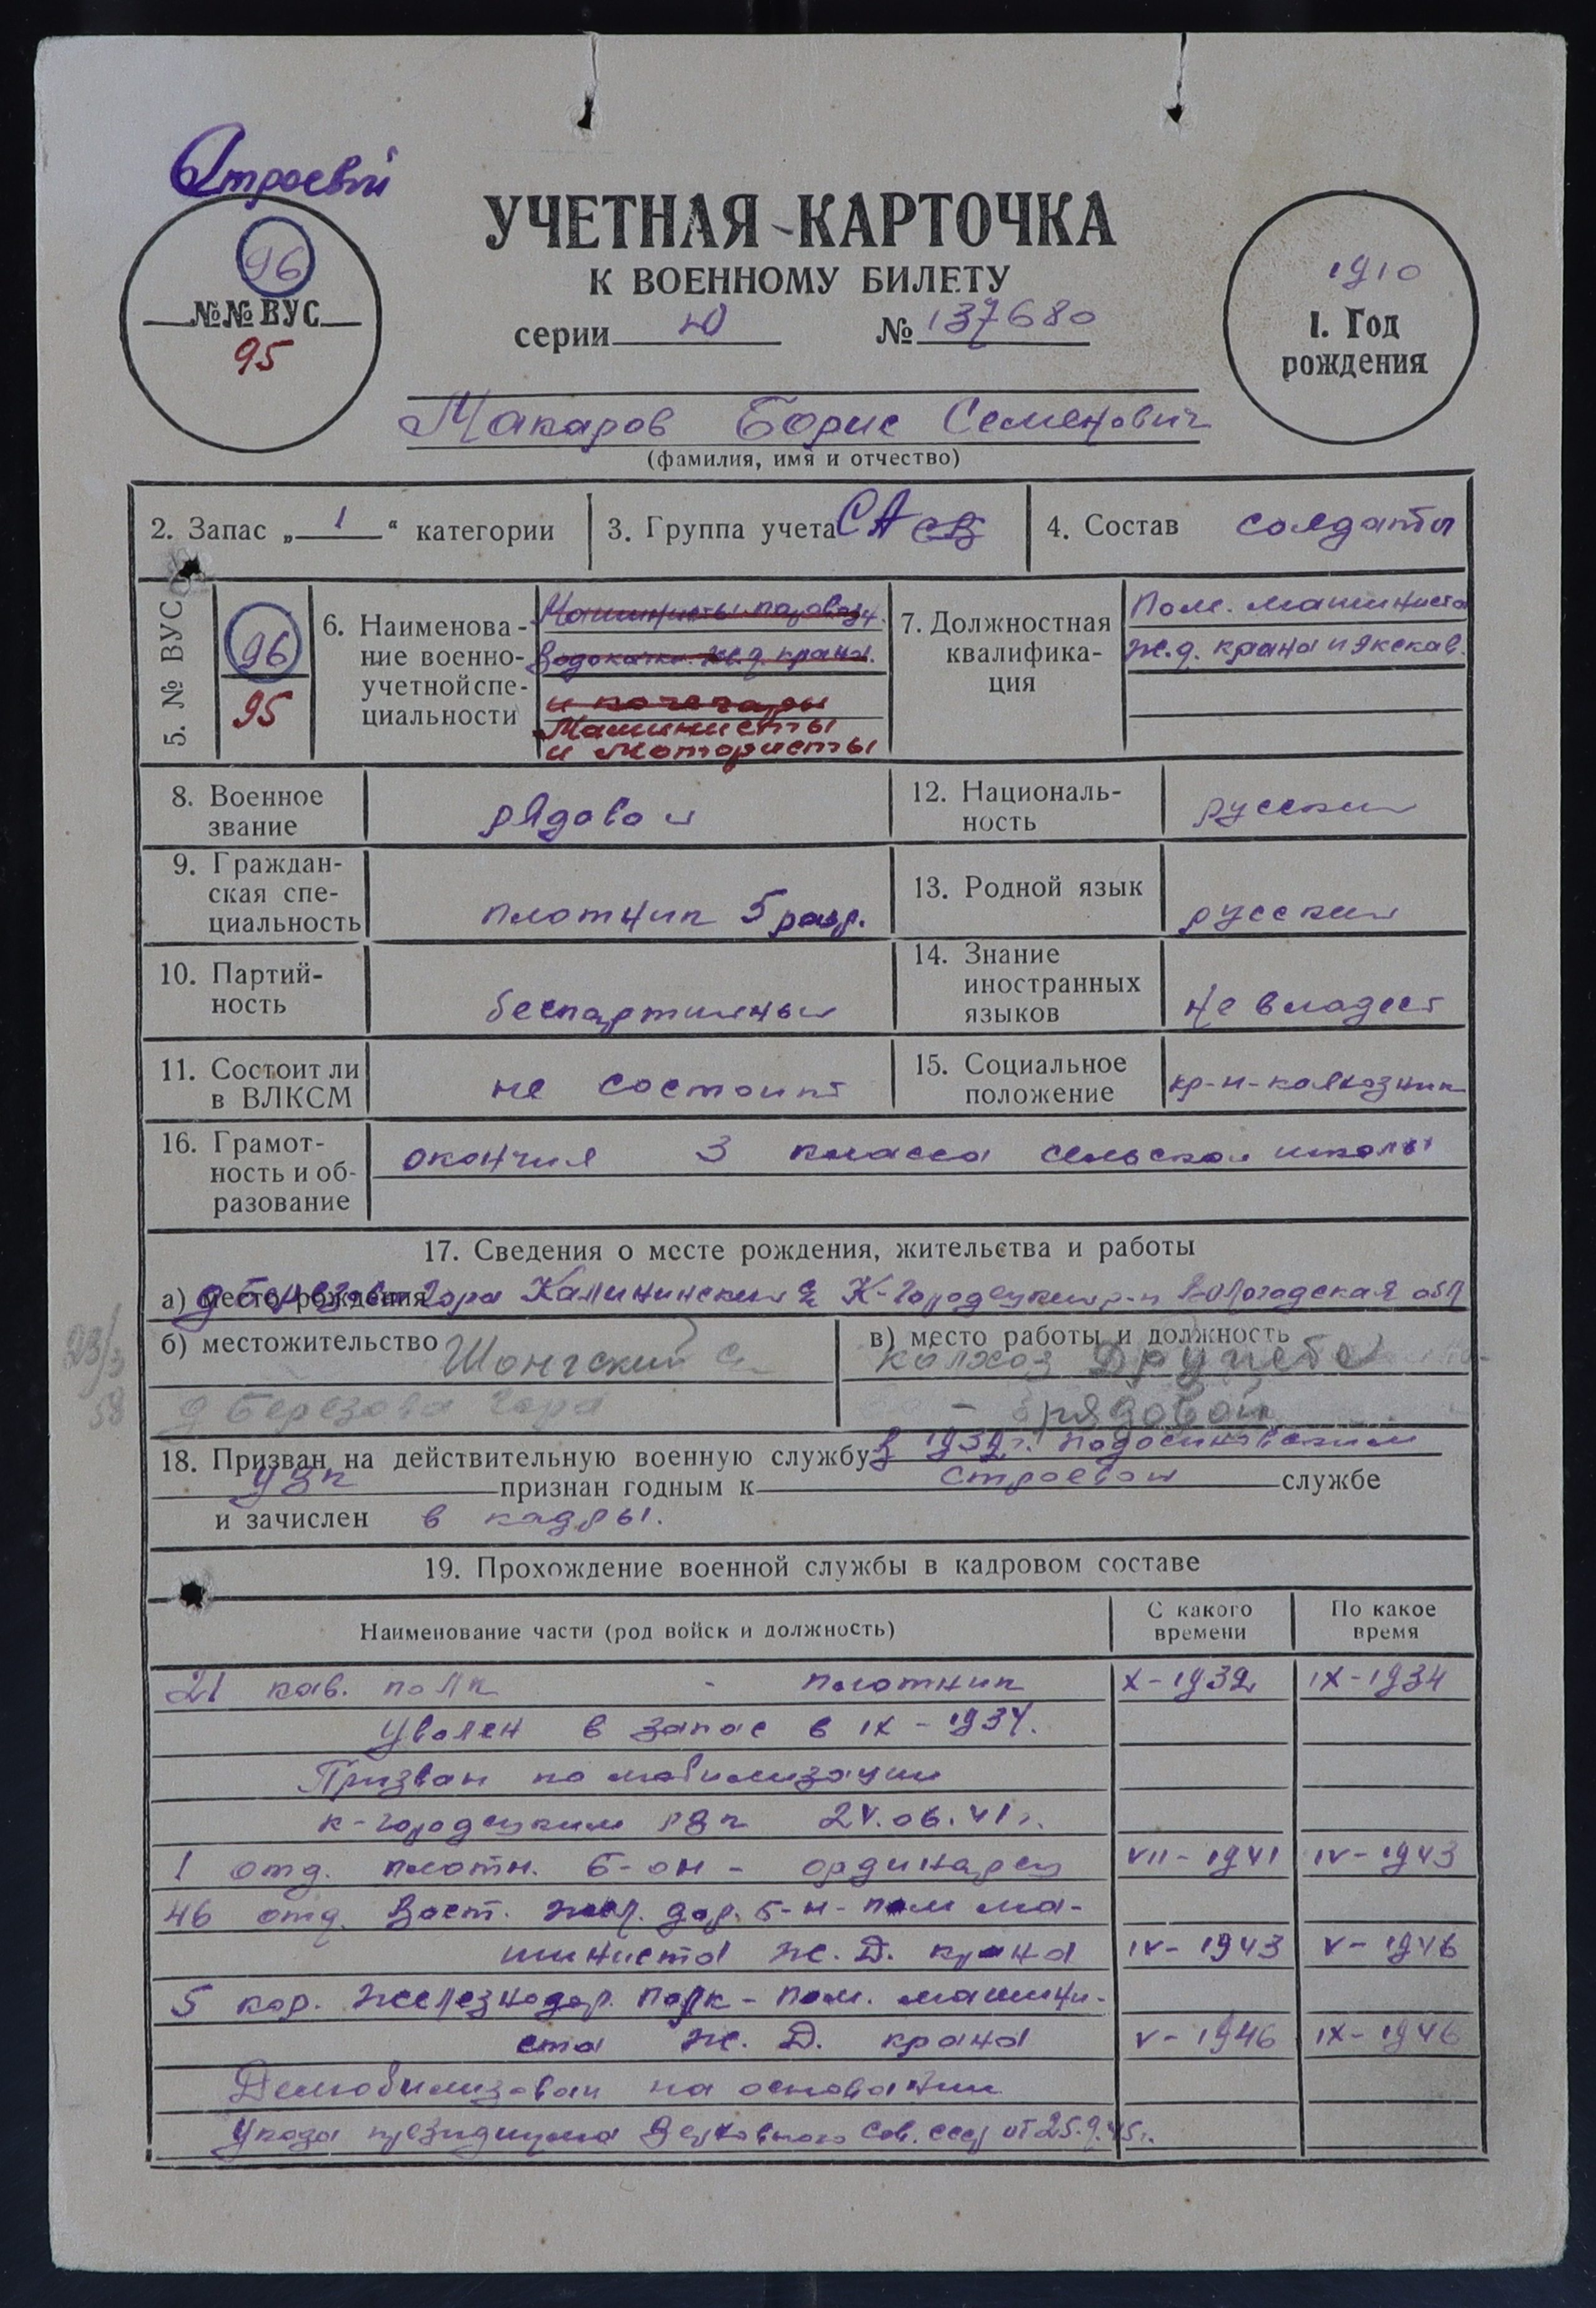 Строевой
96
№№ ВУС
95
УЧЕТНАЯ КАРТОЧКА
К ВОЕННОМУ БИЛЕТУ
серии Ю № 137680
1910
1. Год
рождения
Макаров Борис Семенович
(фамилия, имя и отчество)
2. Запас „ 1 “ категории
3. Группа учета СА св
4. Состав солдаты
5. № ВУС
96
95
6. Наименова-
ние военно-
учетной спе-
циальности
Машинисты паровозн.
водокачки. ж.д. кранн.
и кочегары
Машинисты
и мотористы
7. Должностная
квалифика-
ция
Пом. машиниста
ж.д. крана и экскав.
8. Военное
звание
рядовой
12. Националь-
ность
русский
9. Граждан-
ская спе-
циальность
плотник 5 разр.
13. Родной язык
русский
10. Партий-
ность
беспартийный
14. Знание
иностранных
языков
не владеет
11. Состоит ли
в ВЛКСМ
не состоит
15. Социальное
положение
кр-н-колхозник
16. Грамот-
ность и об-
разование
окончил 3 класса сельской школы
17. Сведения о месте рождения, жительства и работы
а) место рождения д Березова Гора Калининский с/с К-Городецкий р-н Вологодская обл
б) местожительство Шонгский с/с
д Березова Гора
23/3
58
в) место работы и должность
колхоз Дружба
- рядовой
18. Призван на действительную военную службу в 1932 г. Подосиновским
УВК признан годным к строевой службе
и зачислен в кадры.
19. Прохождение военной службы в кадровом составе
Наименование части (род войск и должность)
С какого
времени
По какое
время
21 кав. полк - плотник X-1932 IX-1934
Уволен в запас в IX-1934.
Призван по мобилизации
К-Городецким РВК 24.06.41 г.
1 отд. плотн. б-он - ординарец VII-1941 IV-1943
46 отд. Вост. жел. дор. б-н - пом ма-
шиниста Ж.Д. крана IV-1943 V-1946
5 кор. железнодор. полк - пом. машини-
ста Ж.Д. крана V-1946 IX-1946
Демобилизован на основании
Указа президиума Верховного Сов. СССР от 25.9.45 г.